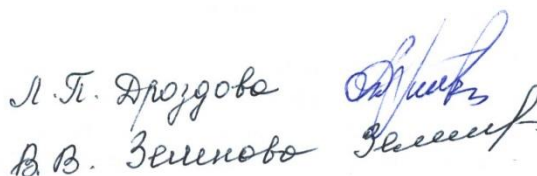 Л.П. Дроздова
В.В. Зеленова